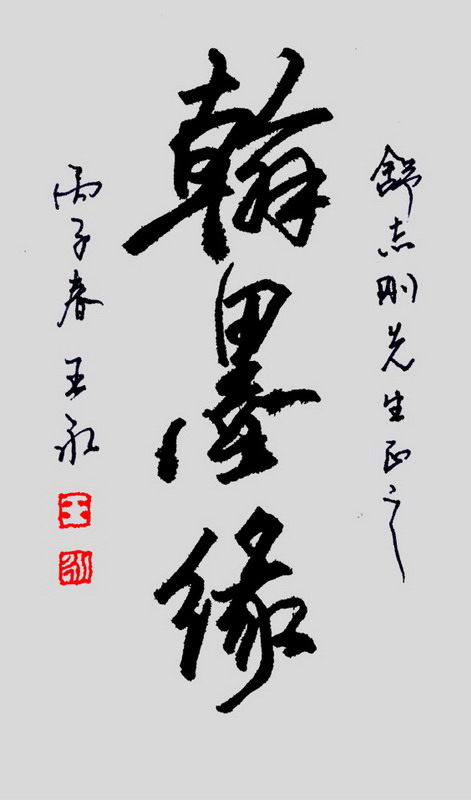 舒志刚先生正之
翰墨缘
丙子春 王永
王